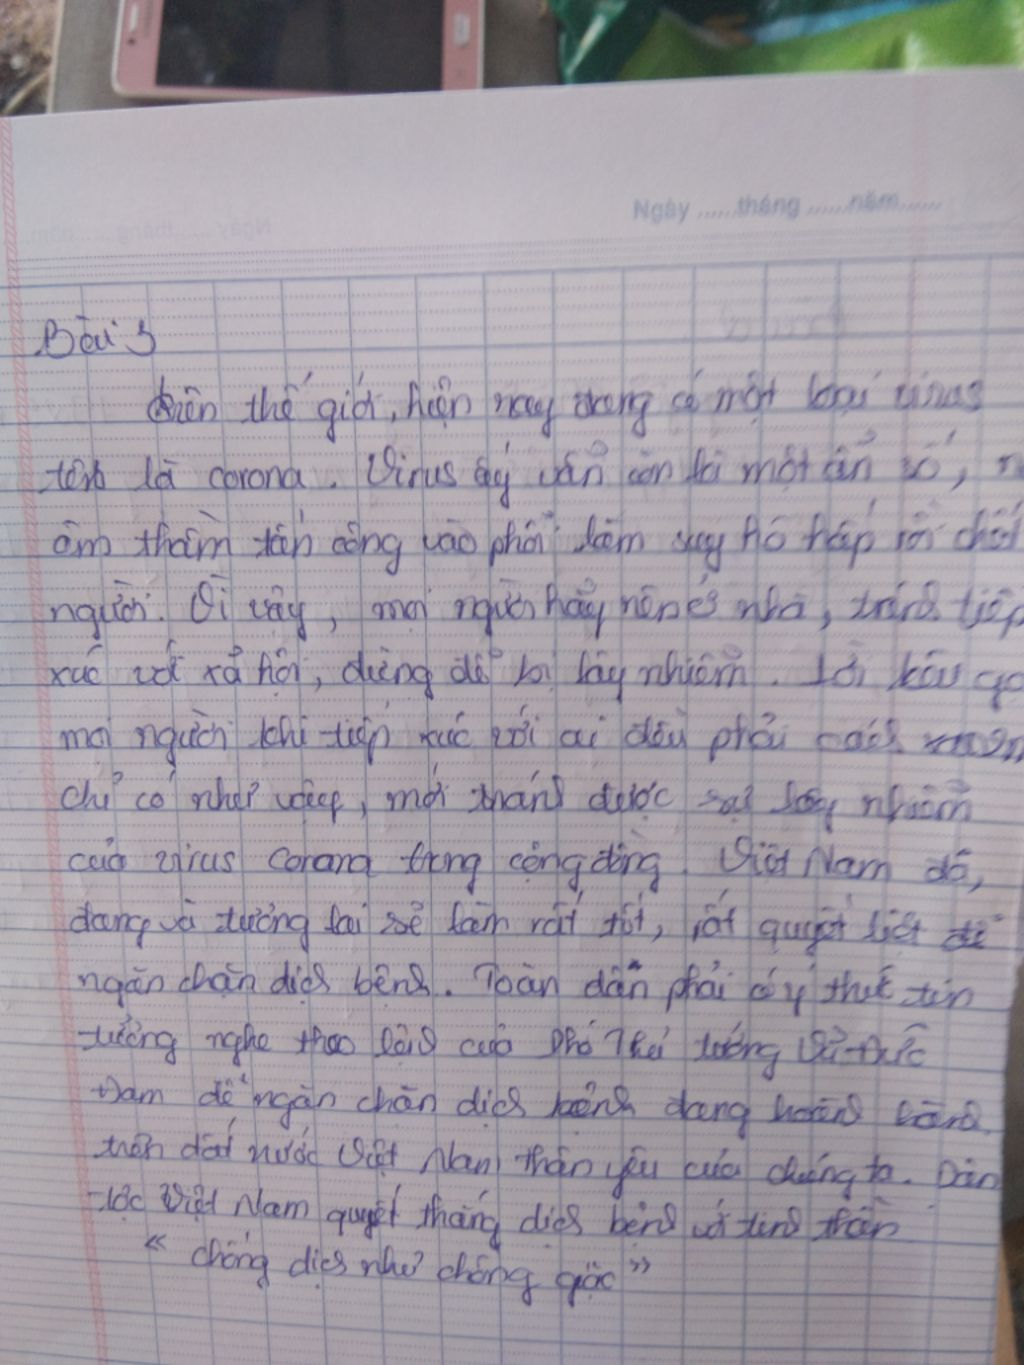 Ngày ......tháng ......năm......
Bài 3
trên thế giới, hiện nay đang có một loại virus
tên là corona. Virus ấy vẫn còn là một ẩn số, n
âm thầm tấn công vào phổi làm suy hô hấp rồi chết
người. Vì vậy, mọi người hãy nên ở nhà, tránh tiếp
xúc với xã hội, đừng để bị lây nhiễm. Lời kêu gọ
mọi người khi tiếp xúc với ai đều phải cách
chỉ có như vậy, mới tránh được sự lây nhiễm
của virus corona trong cộng đồng. Việt Nam đã,
đang và tương lai sẽ làm rất tốt, rất quyết liệt để
ngăn chặn dịch bệnh. Toàn dân phải có ý thức tin
tưởng nghe theo lệnh của Phó Thủ tướng Vũ Đức
Đam để ngăn chặn dịch bệnh đang hoành hành
trên đất nước Việt Nam thân yêu của chúng ta. Dân
tộc Việt Nam quyết thắng dịch bệnh với tinh thần
" chống dịch như chống giặc "